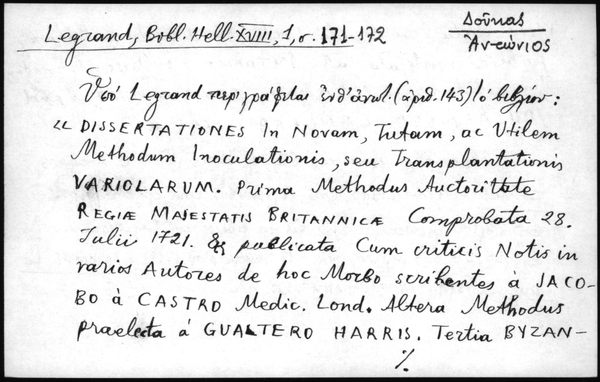 Legrand, Bibl. Hell. XVIII, 1, σ. 171-172
Δούκας
Ἀντώνιος
Ὑπό Legrand περιγράφεται ἐνθ' ἀνωτ. (ἀριθ. 143) τό βιβλίον:
« DISSERTATIONES In Novam, Tutam, ac Utilem
Methodum Inoculationis, seu Transplantationis
VARIOLARUM. Prima Methodus Auctoritate
REGIÆ MAJESTATIS BRITANNICÆ Comprobata 28.
Julii 1721. & publicata Cum criticis Notis in
varios Autores de hoc Morbo scribentes à JACO-
BO à CASTRO Medic. Lond. Altera Methodus
praelecta á GUALTERO HARRIS. Tertia BYZAN-
./.